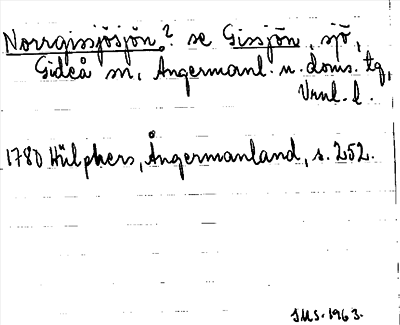 Norrgissjösjön? se Gissjön, sjö,
Gideå sn, Ångermanl. n. doms. tg,
Vnnl. l.
1780 Hülphers, Ångermanland, s. 252.
SMS. 1963.